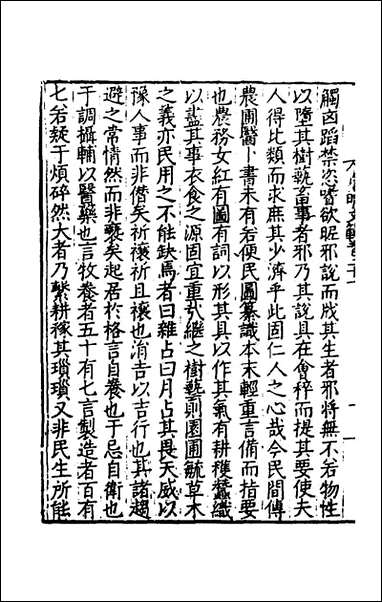 觸凶蹈禁恣嗜欲昵邪說而戕其生者邪將無不若物性
以墮其樹蓺畜事者邪乃其說具在會稡而提其要使夫
人得比類而求庶其少濟乎此固仁人之心哉今民間傳
農圃醫卜書未有若便民圖纂識本末輕重言備而指要
也農務女紅有圖有詞以形其具以作其氣有耕穫蠶織
以盡其事衣食之源固宜重矣繼之樹藝則園圃毓草木
之義亦民用之不能缺焉者曰雜占曰月占其畏天威以
豫人事而非僭矣祈禳祈且禳也涓吉以吉行也其諸趨
避之常情然而非褻矣起居於格言自養也于忌自衛也
于調攝輔以醫藥也言牧養者五十有七言製造者百有
七若疑于煩碎然大者乃繫耕稼其瑣瑣又非民生所能